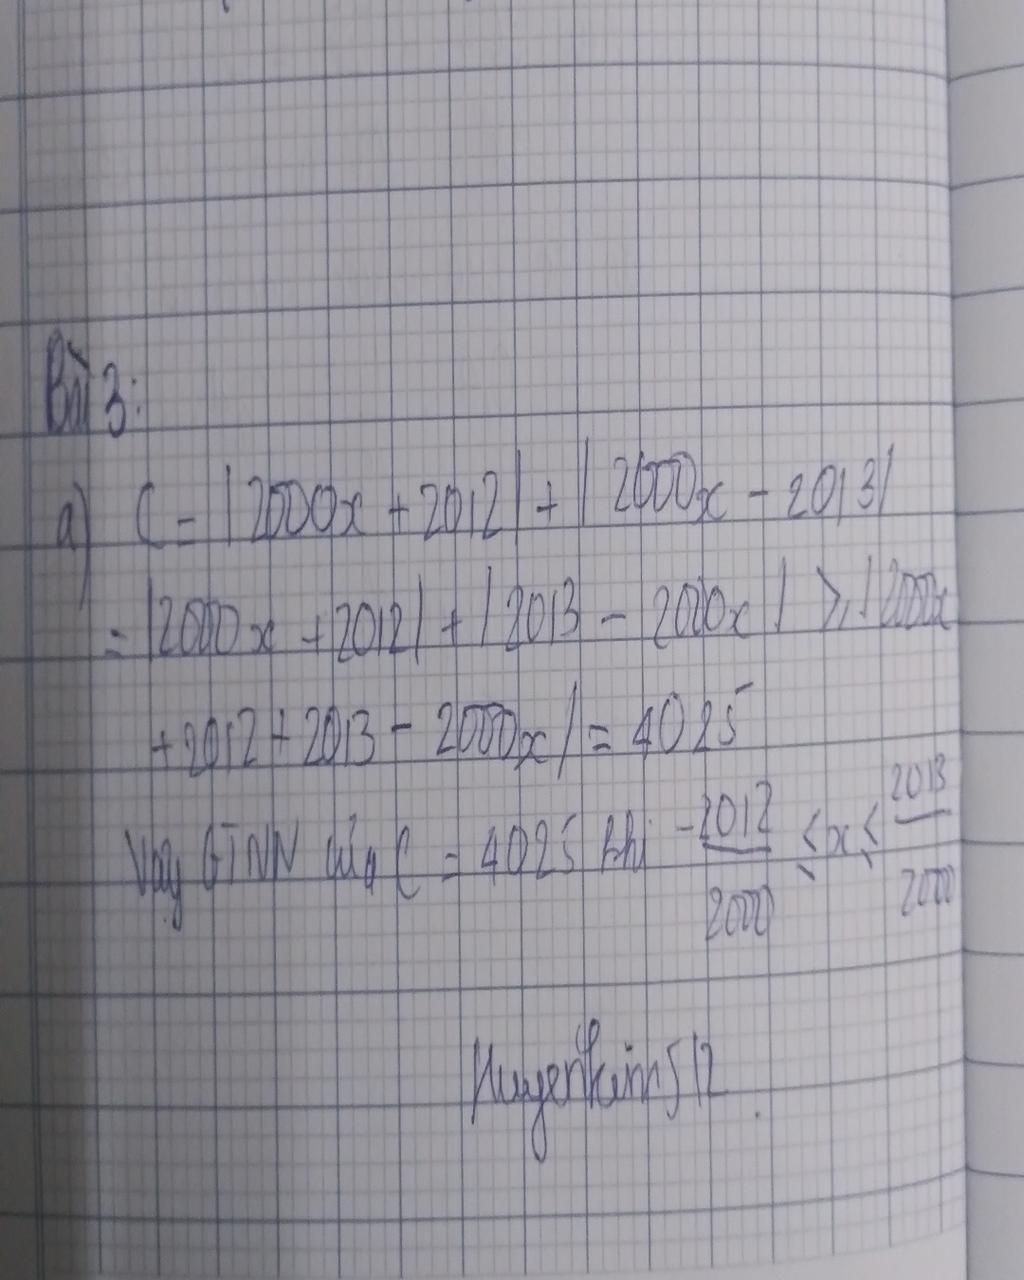 Bài 3:
a) C = |2000x + 2012| + |2000x - 2013|
= |2000x + 2012| + |2013 - 2000x| ≥ |2000x
+ 2012 + 2013 - 2000x| = 4025
Vậy GTNN của C = 4025 khi -2012/2000 ≤ x ≤ 2013/2000
Huyenkim512